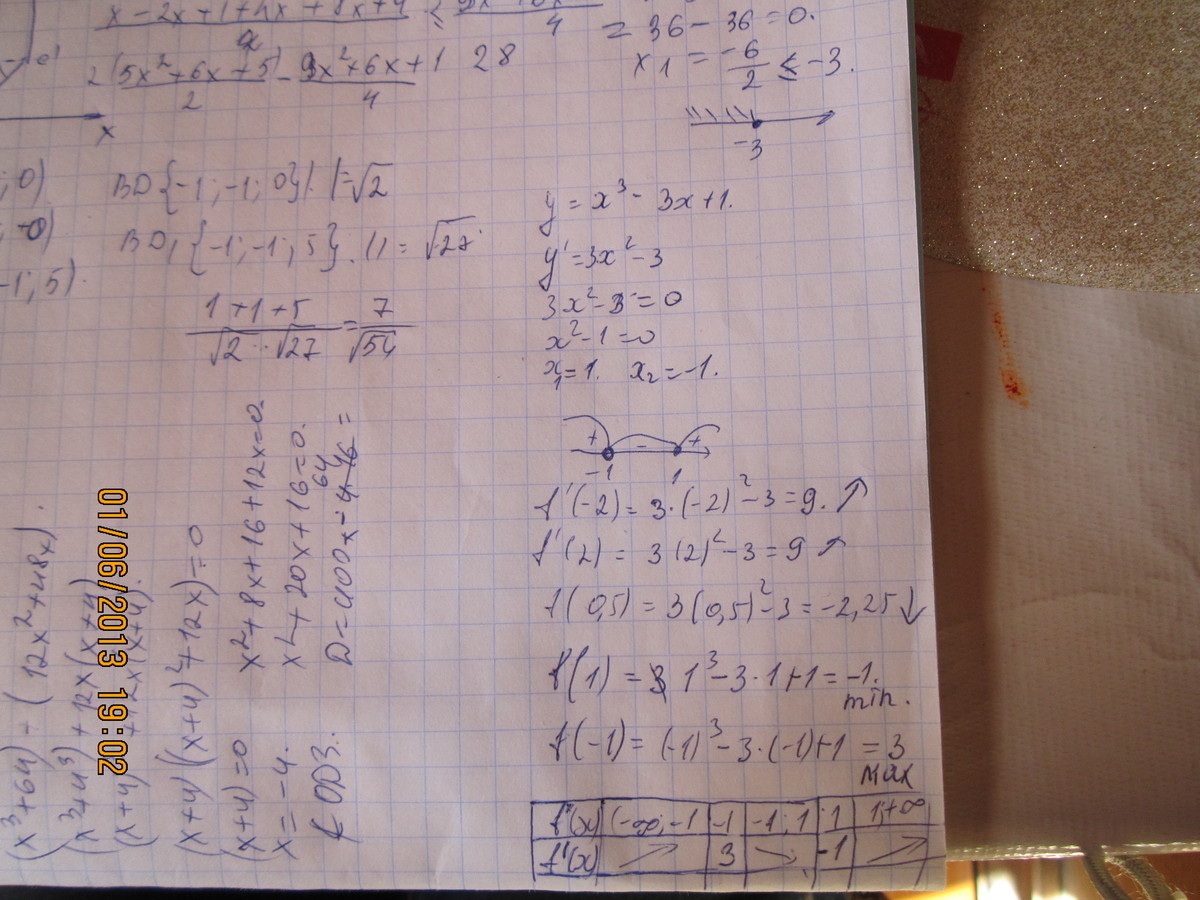 x – 2x + 1 + 4x + 8x + 4
4
= 36 – 36 = 0.
2 (5x² + 6x + 5) – 9x² + 6x + 1 28
2 4
x₁ = –6/2 ≤ –3.
x
–3
; 0) BD {–1; –1; 0} | |=√2
; 0) BD₁ {–1; –1; 5}. || = √27
–1; 5).
1 + 1 + 5 / √2 · √27 = 7 / √54
y = x³ – 3x + 1.
y' = 3x² – 3
3x² – 3 = 0
x² – 1 = 0
x₁ = 1. x₂ = –1.
+ – +
–1 1
f'(–2) = 3·(–2)² – 3 = 9. ↑
f'(2) = 3(2)² – 3 = 9 ↑
f(0,5) = 3(0,5)² – 3 = –2,25 ↓
f(1) = 1³ – 3·1 + 1 = –1.
min.
f(–1) = (–1)³ – 3·(–1) + 1 = 3
max
f'(x) (–∞; –1 –1 –1; 1 1 1; +∞
f'(x) ↗ 3 ↘ –1 ↗
(x³ + 64) + (12x² + 48x).
(x³ + 4³) + 12x (x + 4)
(x + 4)
(x + 4) (x + 4)² + 12x) = 0
(x + 4) = 0 x² + 8x + 16 + 12x = 0
x = –4. x² + 20x + 16 = 0.
ОДЗ. D = 400 – 64 =
01/06/2013 19:02